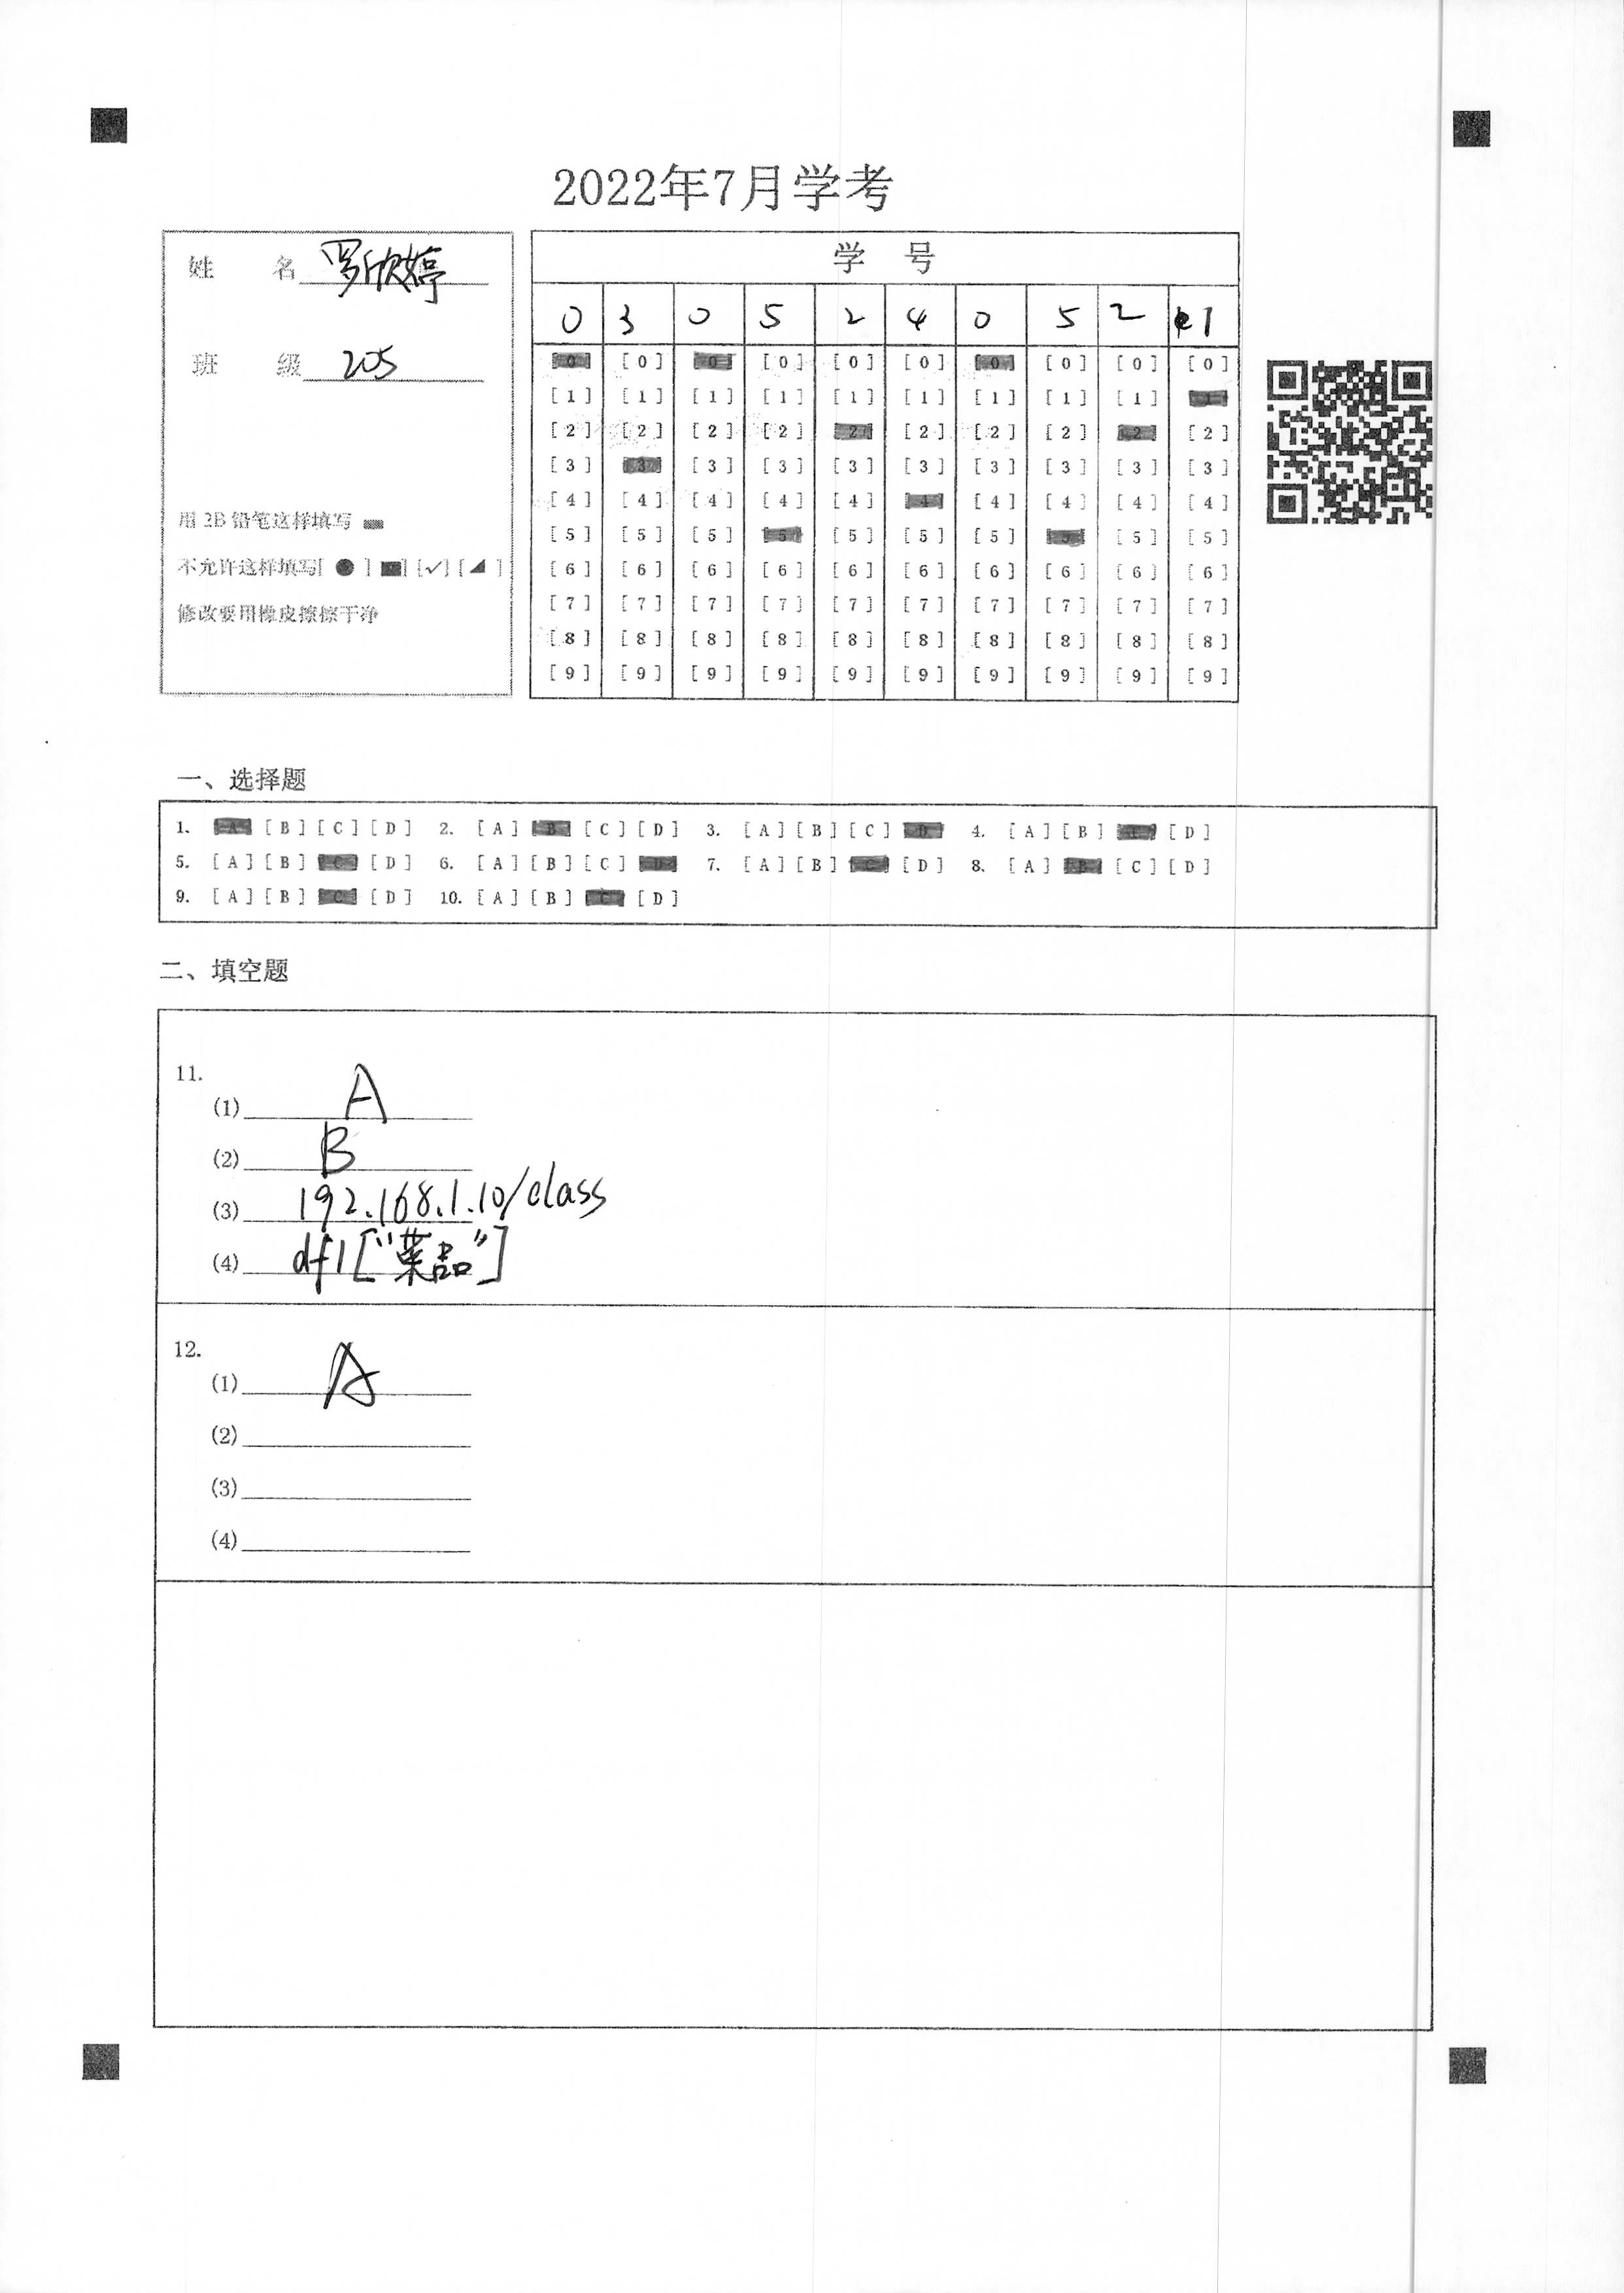 2022年7月学考
姓 名 罗欣婷
班 级 205
用 2B 铅笔这样填写
不允许这样填写[ ● ] [■] [✓] [◢ ]
修改要用橡皮擦擦干净
学 号
0 3 0 5 2 4 0 5 2 1
[0] [0] [0] [0] [0] [0] [0] [0] [0] [0]
[1] [1] [1] [1] [1] [1] [1] [1] [1] [1]
[2] [2] [2] [2] [2] [2] [2] [2] [2] [2]
[3] [3] [3] [3] [3] [3] [3] [3] [3] [3]
[4] [4] [4] [4] [4] [4] [4] [4] [4] [4]
[5] [5] [5] [5] [5] [5] [5] [5] [5] [5]
[6] [6] [6] [6] [6] [6] [6] [6] [6] [6]
[7] [7] [7] [7] [7] [7] [7] [7] [7] [7]
[8] [8] [8] [8] [8] [8] [8] [8] [8] [8]
[9] [9] [9] [9] [9] [9] [9] [9] [9] [9]
一、选择题
1. [A] [B] [C] [D] 2. [A] [B] [C] [D] 3. [A] [B] [C] [D] 4. [A] [B] [C] [D]
5. [A] [B] [C] [D] 6. [A] [B] [C] [D] 7. [A] [B] [C] [D] 8. [A] [B] [C] [D]
9. [A] [B] [C] [D] 10. [A] [B] [C] [D]
二、填空题
11.
(1) A
(2) B
(3) 192.168.1.10/class
(4) df1["菜品"]
12.
(1) A
(2)
(3)
(4)